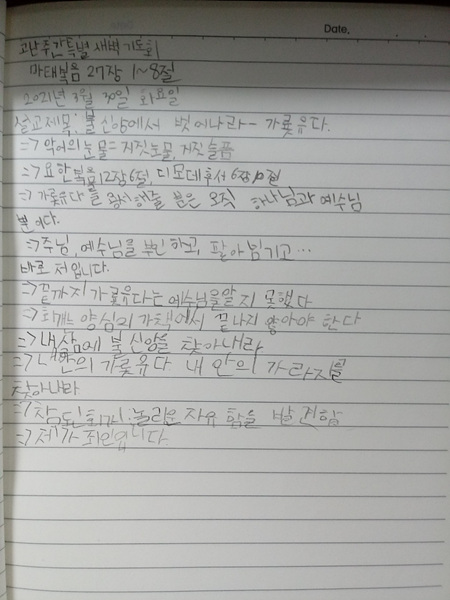 Date.
고난주간특별 새벽 기도회
마태복음 27장 1~8절
2021년 3월 30일 화요일
설교제목: 불 신앙에서 벗어나라 - 가롯유다.
=> 악어의 눈물 = 거짓눈물, 거짓슬픔
=> 요한복음 12장 6절, 디모데후서 6장 10절
=> 가롯유다를 용서해줄 분은 오직 하나님과 예수님
뿐이다.
=> 주님, 예수님을 부인하고, 팔아넘기고...
바로 저입니다.
=> 끝까지 가롯유다는 예수님을 알지 못했다
=> 회개는 양심의 가책에서 끝나지 않아야 한다
=> 내 삶에 불신앙을 찾아내라
=> 내안의 가롯유다 내 안의 가라지를
찾아나라
=> 참된 회개: 놀라운 자유함을 발견함
=> 제가 죄인입니다